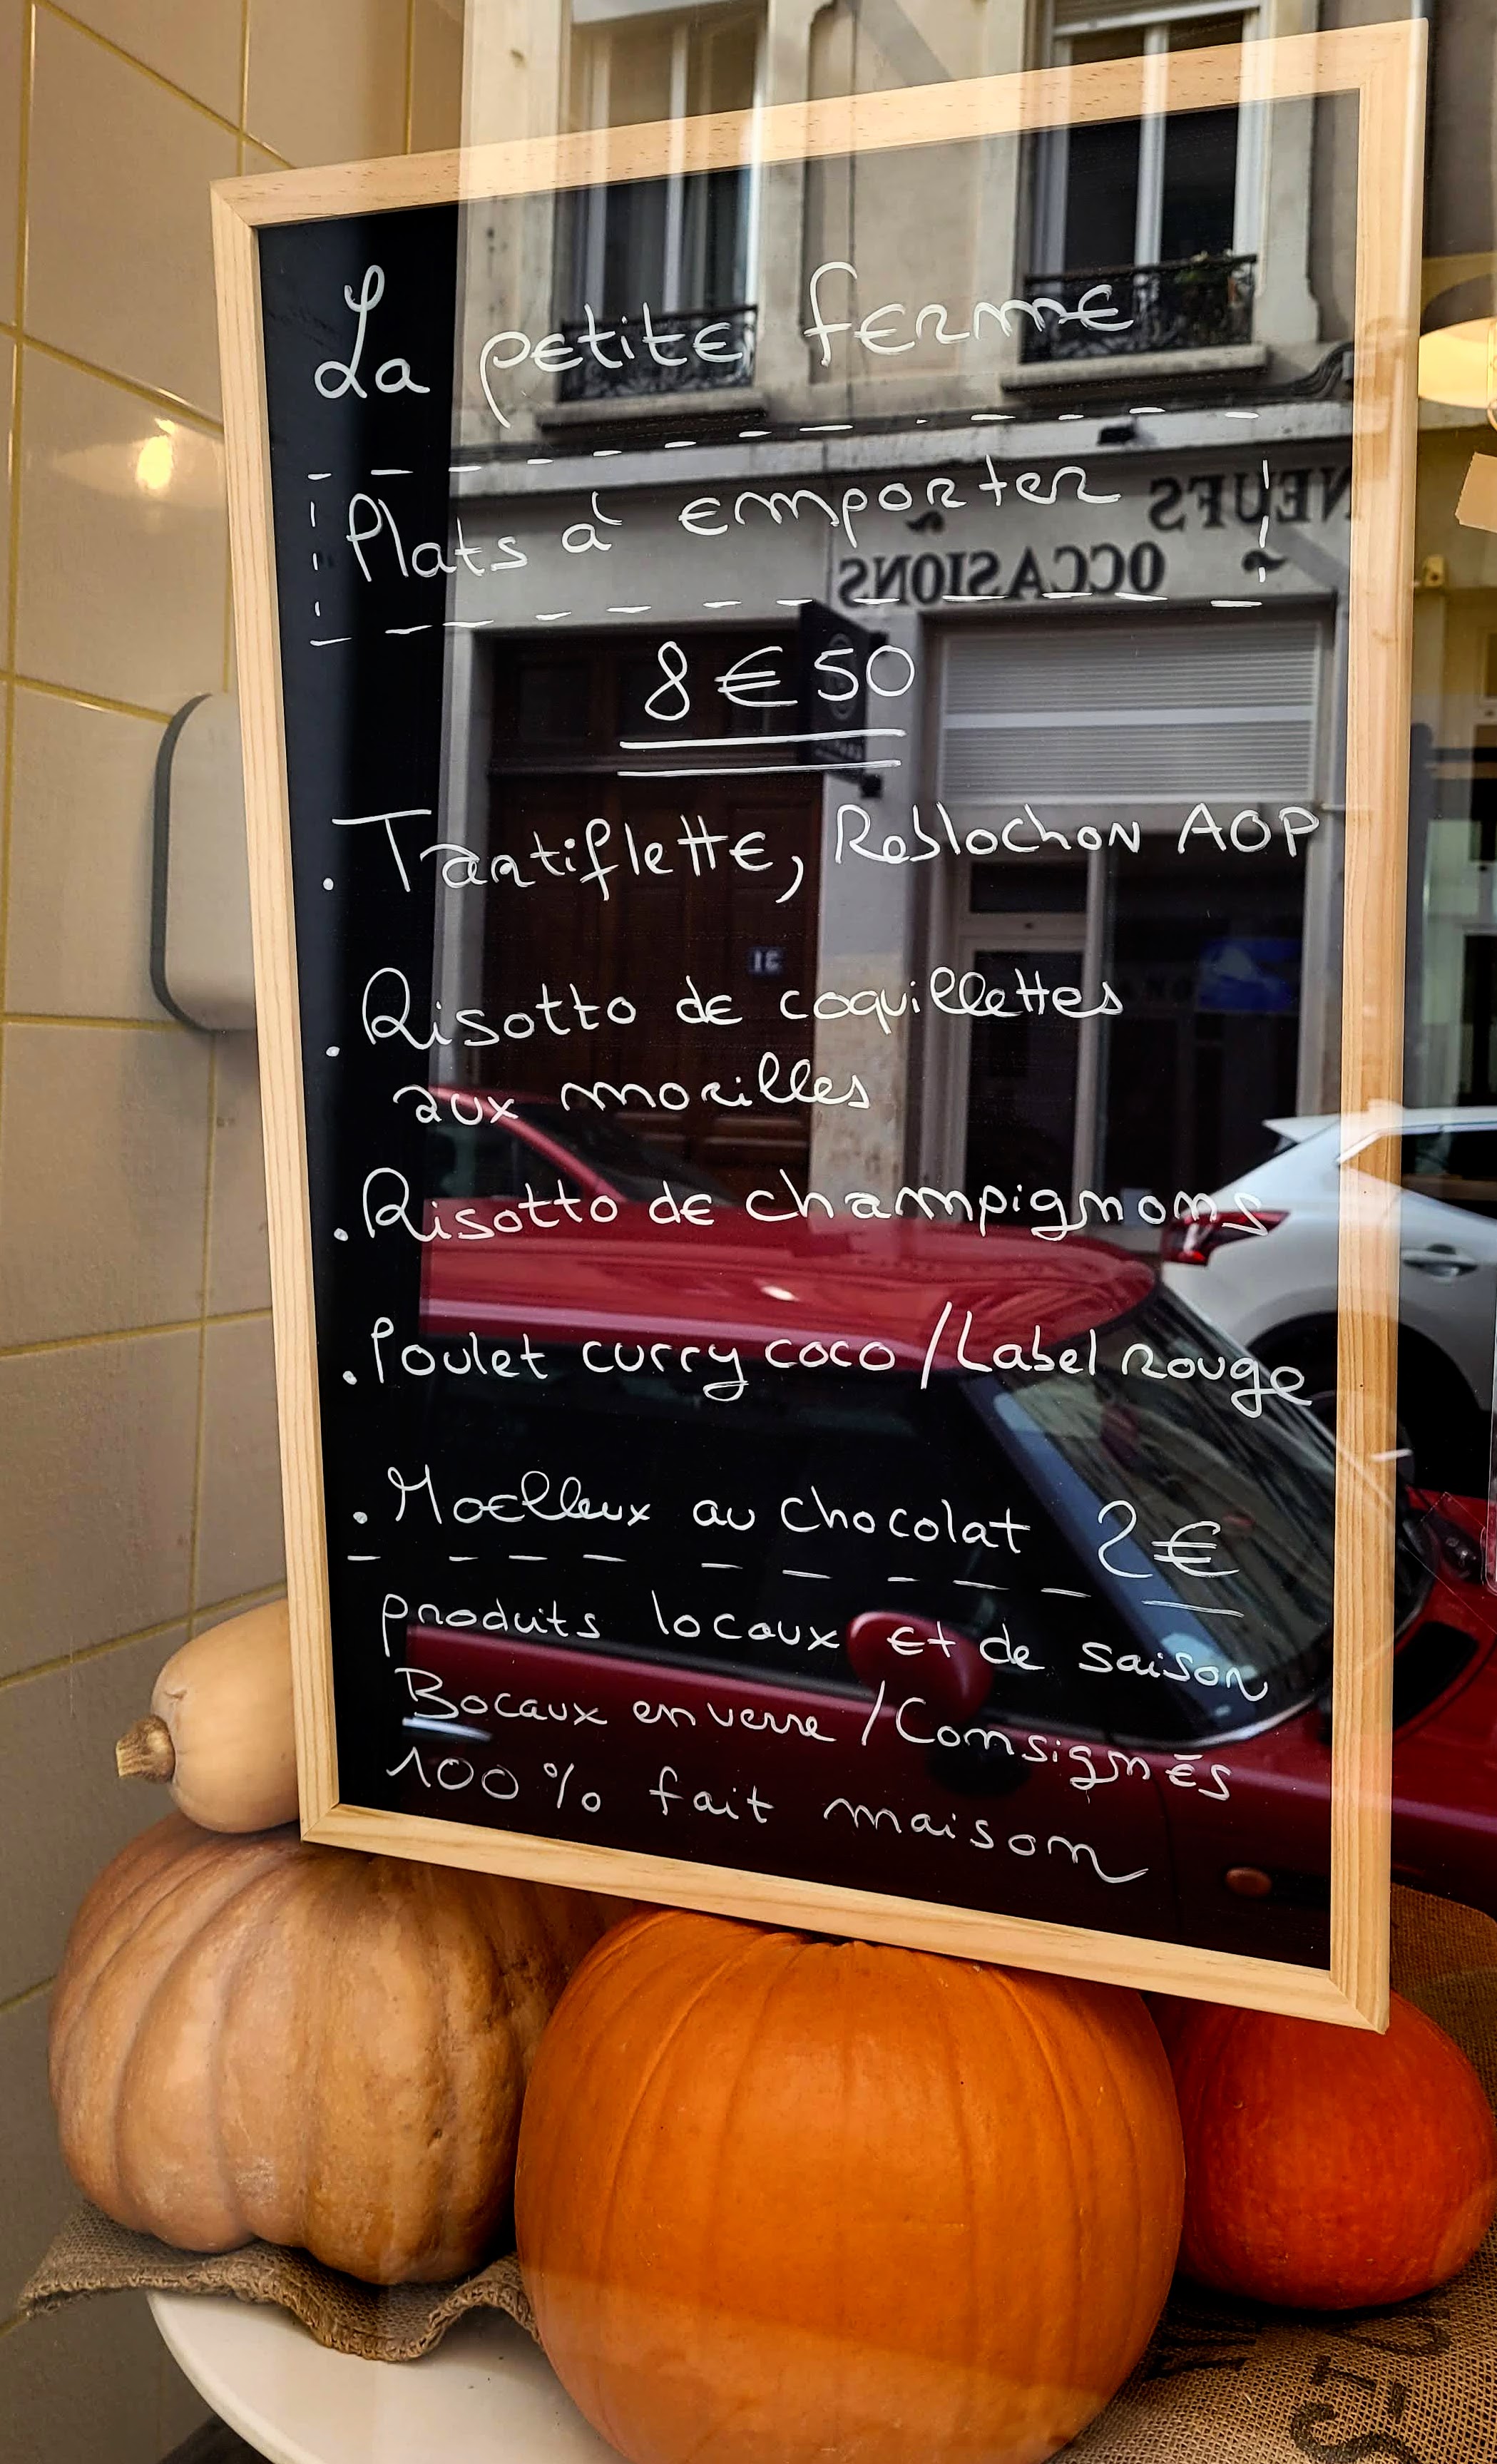 La petite ferme
Plats à emporter
8€50
. Tartiflette, Reblochon AOP
. Risotto de coquillettes
aux morilles
. Risotto de champignons
. Poulet curry coco / Label Rouge
. Moelleux au chocolat 2€
produits locaux et de saison
Bocaux en verre / Consignés
100% fait maison
NEUFS
OCCASIONS